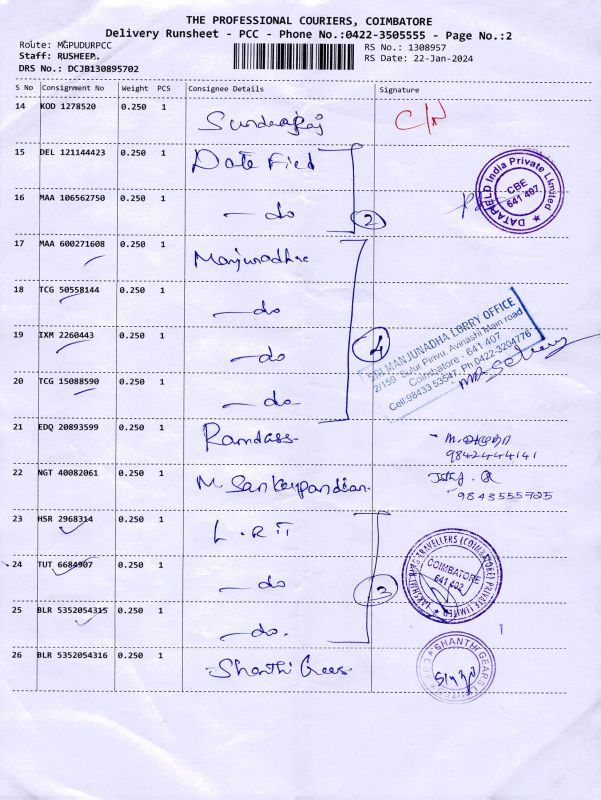 THE PROFESSIONAL COURIERS, COIMBATORE
Delivery Runsheet - PCC - Phone No.:0422-3505555 - Page No.:2
Route: MGPUDURPCC
RS No.: 1308957
Staff: RUSHEEP..
RS Date: 22-Jan-2024
DRS No.: DCJB130895702
S No Consignment No Weight PCS Consignee Details Signature
14 KOD 1278520 0.250 1 Sunderaraj C/N
15 DEL 121144423 0.250 1 Date Fied
DATAFIELD India Private Limited
CBE
641 407
16 MAA 106562750 0.250 1 - do 2
17 MAA 600271608 0.250 1 Manjunadha
18 TCG 50558144 0.250 1 - do
19 IXM 2260443 0.250 1 - do 4
SRI MANJUNADHA LORRY OFFICE
2/159, Sulur Pirivu, Avinashi Main road
Coimbatore - 641 407
Cell:98433 53547, Ph:0422-3204776
20 TCG 15088590 0.250 1 - do
21 EDQ 20893599 0.250 1 Ramdass
9842444141
22 NGT 40082061 0.250 1 M. Sankaypandian
9843555705
23 HSR 2968314 0.250 1 L.R.T
24 TUT 6684907 0.250 1 - do 3
TRAVELLERS (COIMBATORE) PRIVATE LIMITED
COIMBATORE
641 402
25 BLR 5352054315 0.250 1 - do.
26 BLR 5352054316 0.250 1 Shanthi Gees
SHANTHI GEARS LIMITED